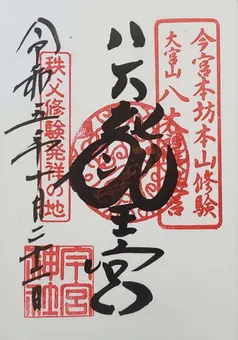 今宮本坊本山修験
大宮山八大
八大龍王宮
秩父修験発祥の地
令和五年十月二十二日
今宮
神社